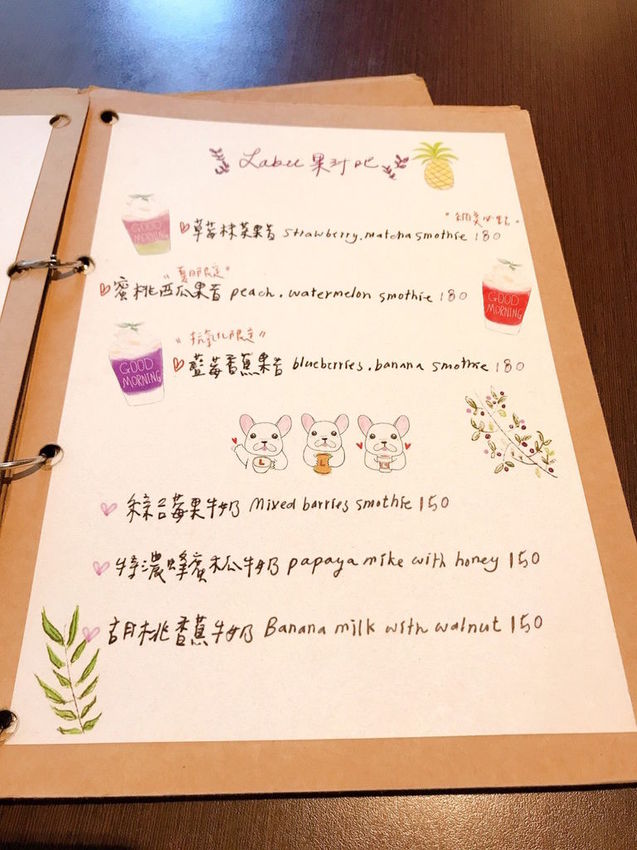 Labu 果汁吧
"網美必點"
草莓抹茶果昔 strawberry.matcha smothie 180
"夏日限定"
蜜桃西瓜果昔 peach.watermelon smothie 180
"抗氧化限定"
藍莓香蕉果昔 blueberries.banana smothie 180
GOOD MORNING
GOOD MORNING
GOOD MORNING
L
L
綜合莓果牛奶 Mixed barries smothie 150
特濃蜂蜜木瓜牛奶 papaya mike with honey 150
胡桃香蕉牛奶 Banana milk with walnut 150